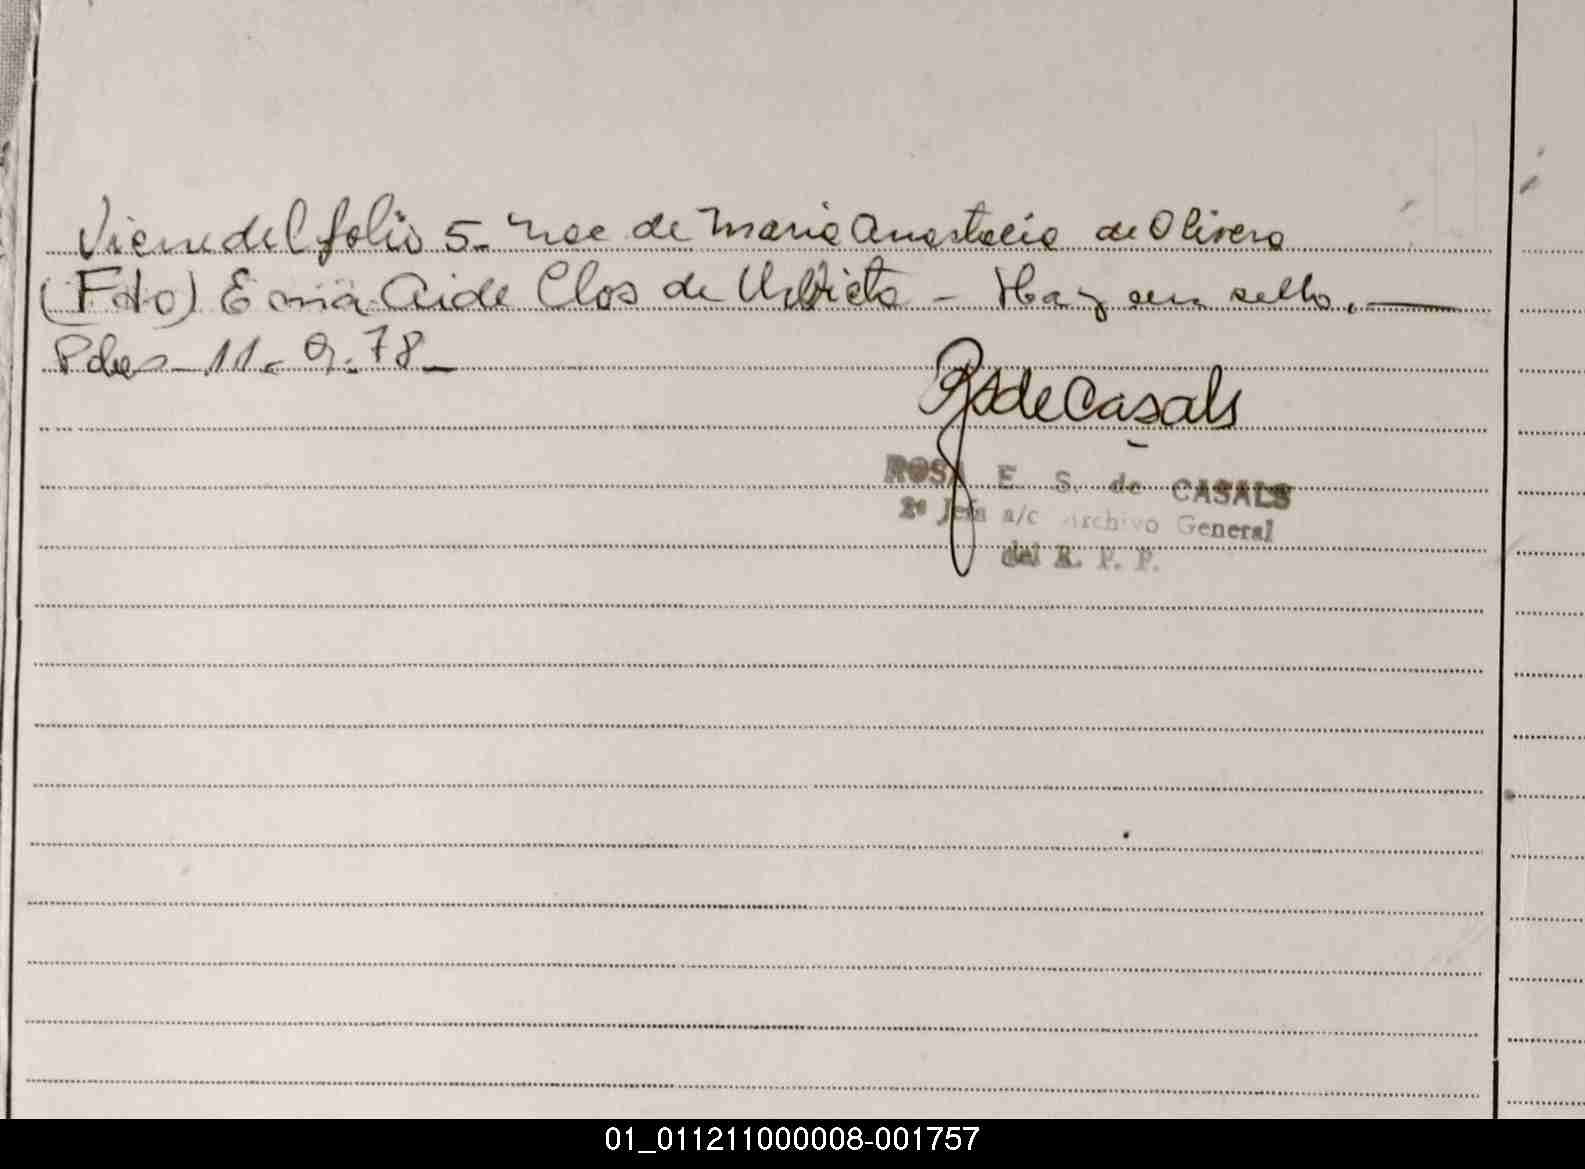 Viene del folio 5. Nac de Maria Anastacia de Olivera
(Fdo) Ema Aide Clos de Urbieta - Hay un sello.
Pdas 11. 9. 78
RSdeCasals
ROSA E S. de CASALS
2ª Jefa a/c Archivo General
del R. P. P.
01_011211000008-001757